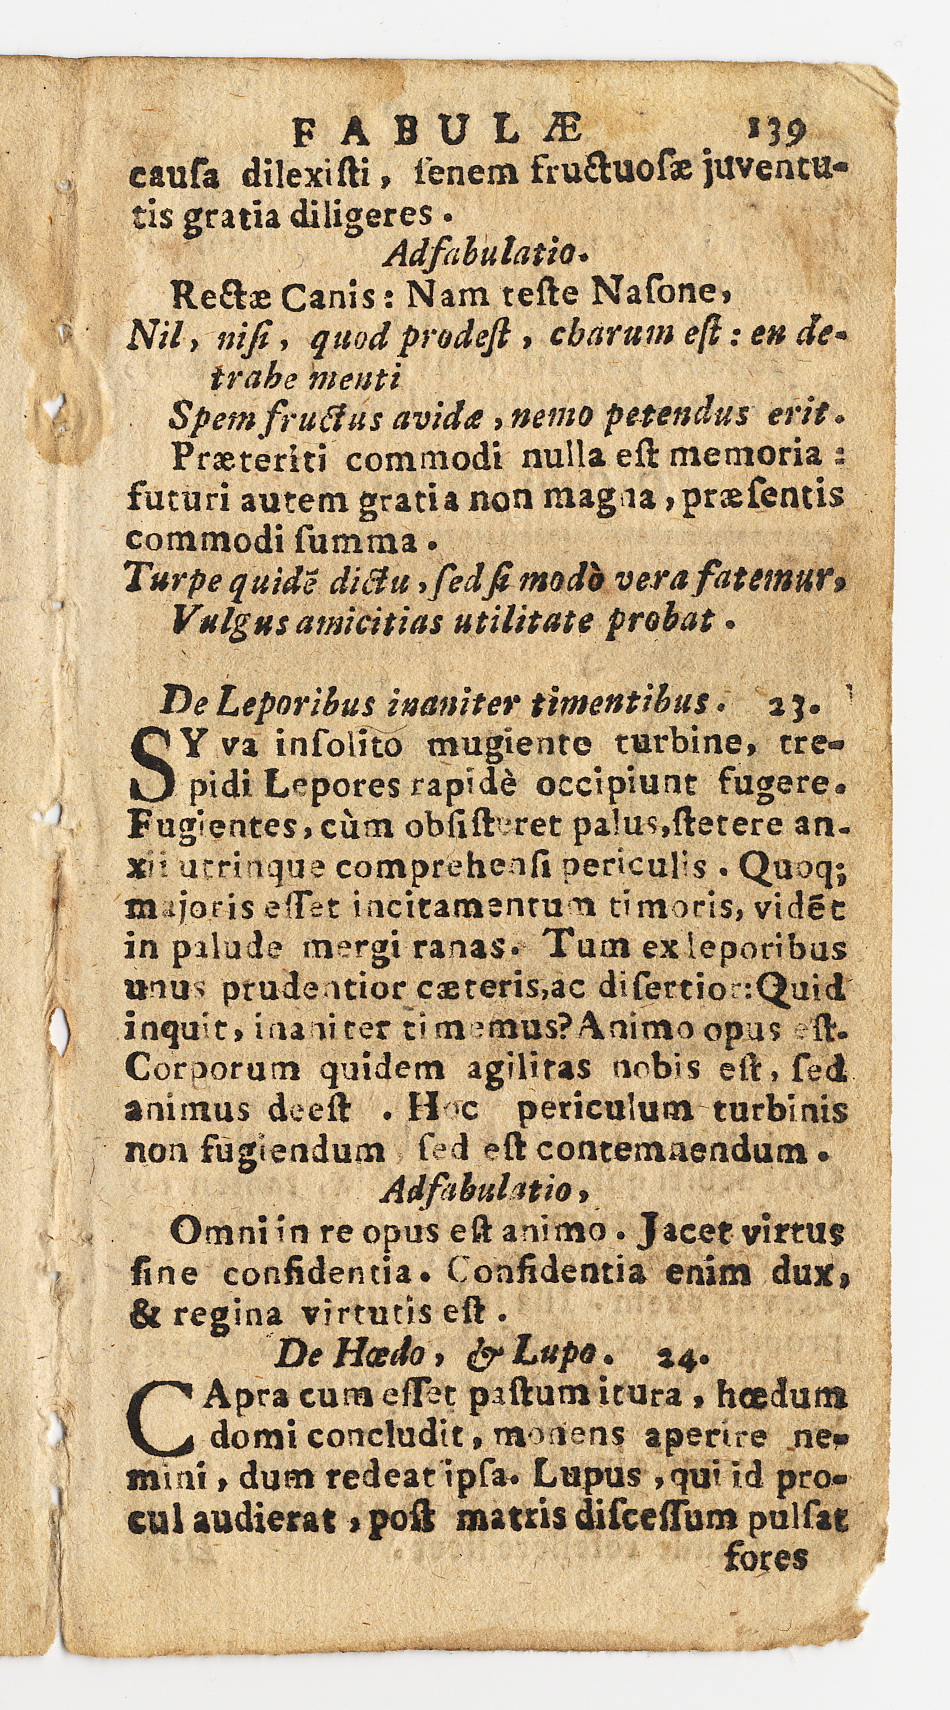 FABULÆ 139
cauſa dilexiſti, ſenem fructuoſæ juventu-
tis gratia diligeres.
Adfabulatio.
Rectæ Canis: Nam teſte Naſone,
Nil, niſi, quod prodeſt, charum eſt: en de-
trahe menti
Spem fructus avidæ, nemo petendus erit.
Præteriti commodi nulla eſt memoria:
futuri autem gratia non magna, præſentis
commodi ſumma.
Turpe quidē dictu, ſed ſi modò vera fatemur,
Vulgus amicitias utilitate probat.
De Leporibus inaniter timentibus. 23.
SYva inſolito mugiente turbine, tre-
pidi Lepores rapidè occipiunt fugere.
Fugientes, cùm obſiſteret palus, ſtetere an-
xii utrinque comprehenſi periculis. Quoq;
majoris eſſet incitamentum timoris, vidēt
in palude mergi ranas. Tum ex leporibus
unus prudentior cæteris, ac diſertior: Quid
inquit, inaniter timemus? Animo opus eſt.
Corporum quidem agilitas nobis eſt, ſed
animus deeſt. Hoc periculum turbinis
non fugiendum, ſed eſt contemnendum.
Adfabulatio,
Omni in re opus eſt animo. Jacet virtus
ſine confidentia. Confidentia enim dux,
& regina virtutis eſt.
De Hœdo, & Lupo. 24.
CApra cum eſſet paſtum itura, hœdum
domi concludit, monens aperire ne-
mini, dum redeat ipſa. Lupus, qui id pro-
cul audierat, poſt matris diſceſſum pulſat
fores